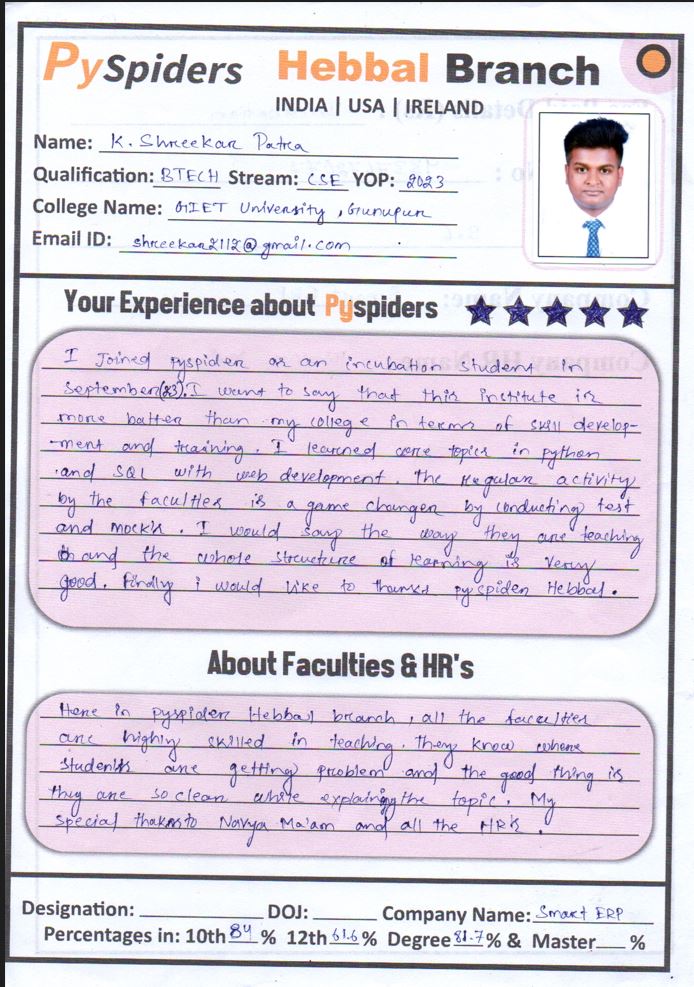 PySpiders Hebbal Branch
INDIA | USA | IRELAND
Name: K. Shreekar Patra
Qualification: BTECH Stream: CSE YOP: 2023
College Name: GIET University , Gunupur
Email ID: shreekar2112@gmail.com
Your Experience about Pyspiders
I Joined pyspider as an incubation student in
September(23). I want to say that this institute is
more batter than my college in terms of skill develop-
-ment and training. I learned core topics in python
and SQL with web development. The regular activity
by the faculties is a game changer by conducting test
and mock's. I would say the way they are teaching
and the whole structure of learning is very
good. Finally i would like to thanks pyspider Hebbal.
About Faculties & HR's
Here in pyspider Hebbal branch, all the faculties
are highly skilled in teaching. They know where
students are getting problem and the good thing is
they are so clear while explaining the topic. My
special thanks to Navya Ma'am and all the HR's.
Designation: DOJ: Company Name: Smart ERP
Percentages in: 10th 84 % 12th 61.6 % Degree 81.7 % & Master %